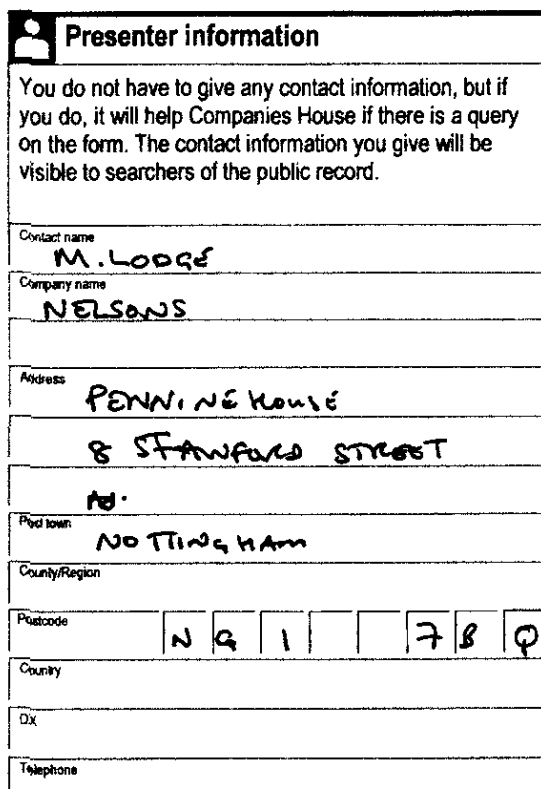 Presenter information
You do not have to give any contact information, but if
you do, it will help Companies House if there is a query
on the form. The contact information you give will be
visible to searchers of the public record.
Contact name
M. LODGE
Company name
NELSONS
Address
PENNINE HOUSE
8 STANFORD STREET
Post town
NOTTINGHAM
County/Region
Postcode
NG1 7BQ
Country
DX
Telephone